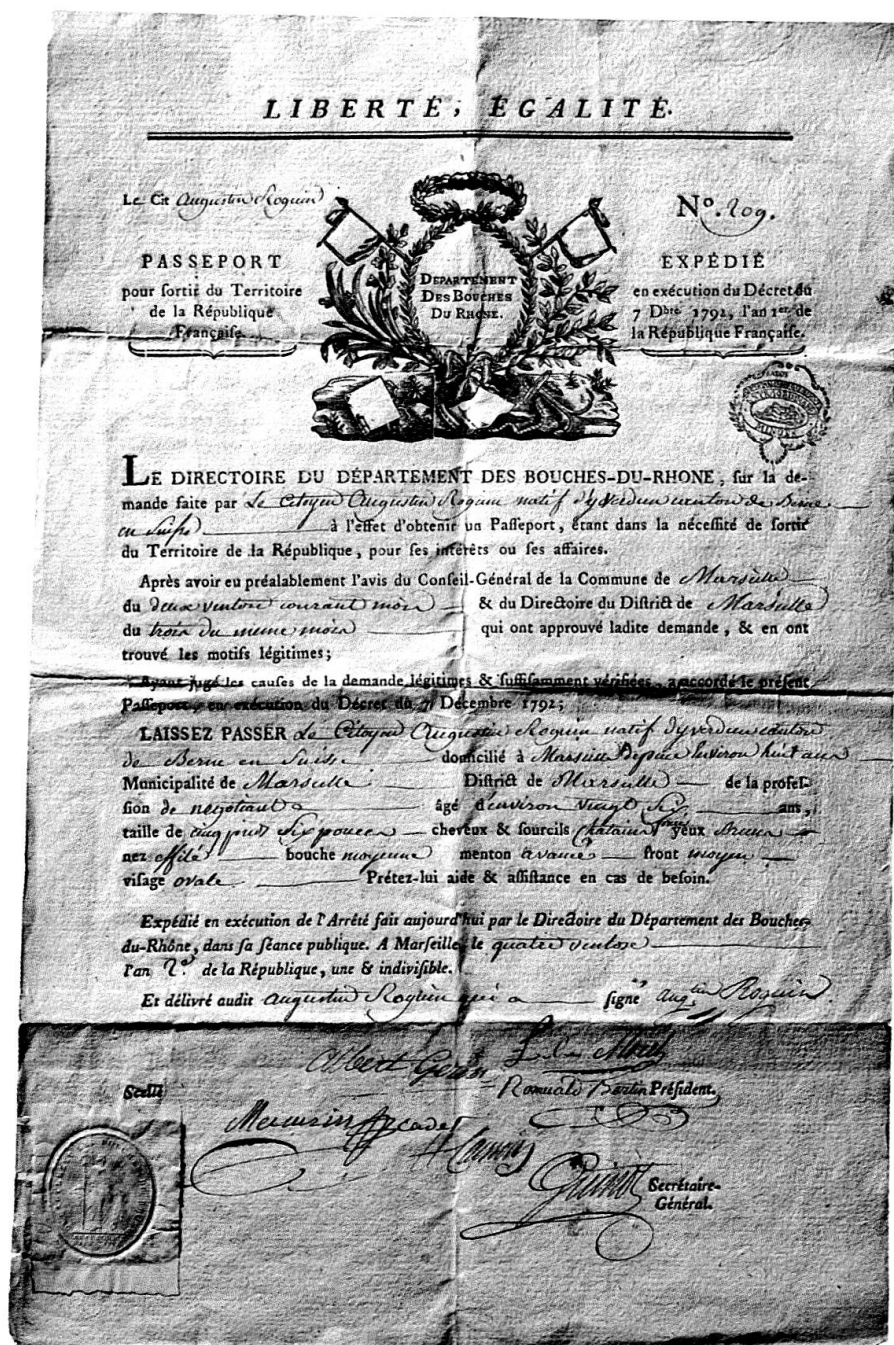 LIBERTÉ, ÉGALITÉ.
Le Cit Augustin Roguin
Nº. 209.
PASSEPORT
pour sortir du Territoire
de la République
Française.
DEPARTEMENT
DES BOUCHES
DU RHONE.
EXPÉDIÉ
en exécution du Décret du
7 Dbre. 1792, l'an 1er. de
la République Française.
LE DIRECTOIRE DU DÉPARTEMENT DES BOUCHES-DU-RHONE, sur la de-
mande faite par Le Citoyen Augustin Roguin natif d'yverdun canton de Berne
en Suisse à l'effet d'obtenir un Passeport, étant dans la nécessité de sortir
du Territoire de la République, pour ses intérêts ou ses affaires.
Après avoir eu préalablement l'avis du Conseil-Général de la Commune de Marseille
du deux ventose courant mois & du Directoire du District de Marseille
du trois du meme mois qui ont approuvé ladite demande, & en ont
trouvé les motifs légitimes;
Ayant jugé les causes de la demande légitimes & suffisamment vérifiées, a accordé le présent
Passeport, en exécution du Décret du 7 Décembre 1792;
LAISSEZ PASSER Le Citoyen Augustin Roguin natif d'yverdun canton
de Berne en Suisse domicilié à Marseille depuis environ huit ans
Municipalité de Marseille District de Marseille de la profes-
sion de negotiant âgé d'environ vingt six ans,
taille de cinq pieds six pouces cheveux & sourcils chatains yeux bruns
nez effilé bouche moyenne menton avancé front moyen
visage ovale Prétez-lui aide & assistance en cas de besoin.
Expédié en exécution de l'Arrêté fait aujourd'hui par le Directoire du Département des Bouches-
du-Rhône, dans sa séance publique. A Marseille, le quatre ventose
l'an 2e. de la République, une & indivisible.
Et délivré audit Augustin Roguin qui a signé augtin Roguin
Scellé
Romuald Bertin Président.
Secrétaire-
Général.